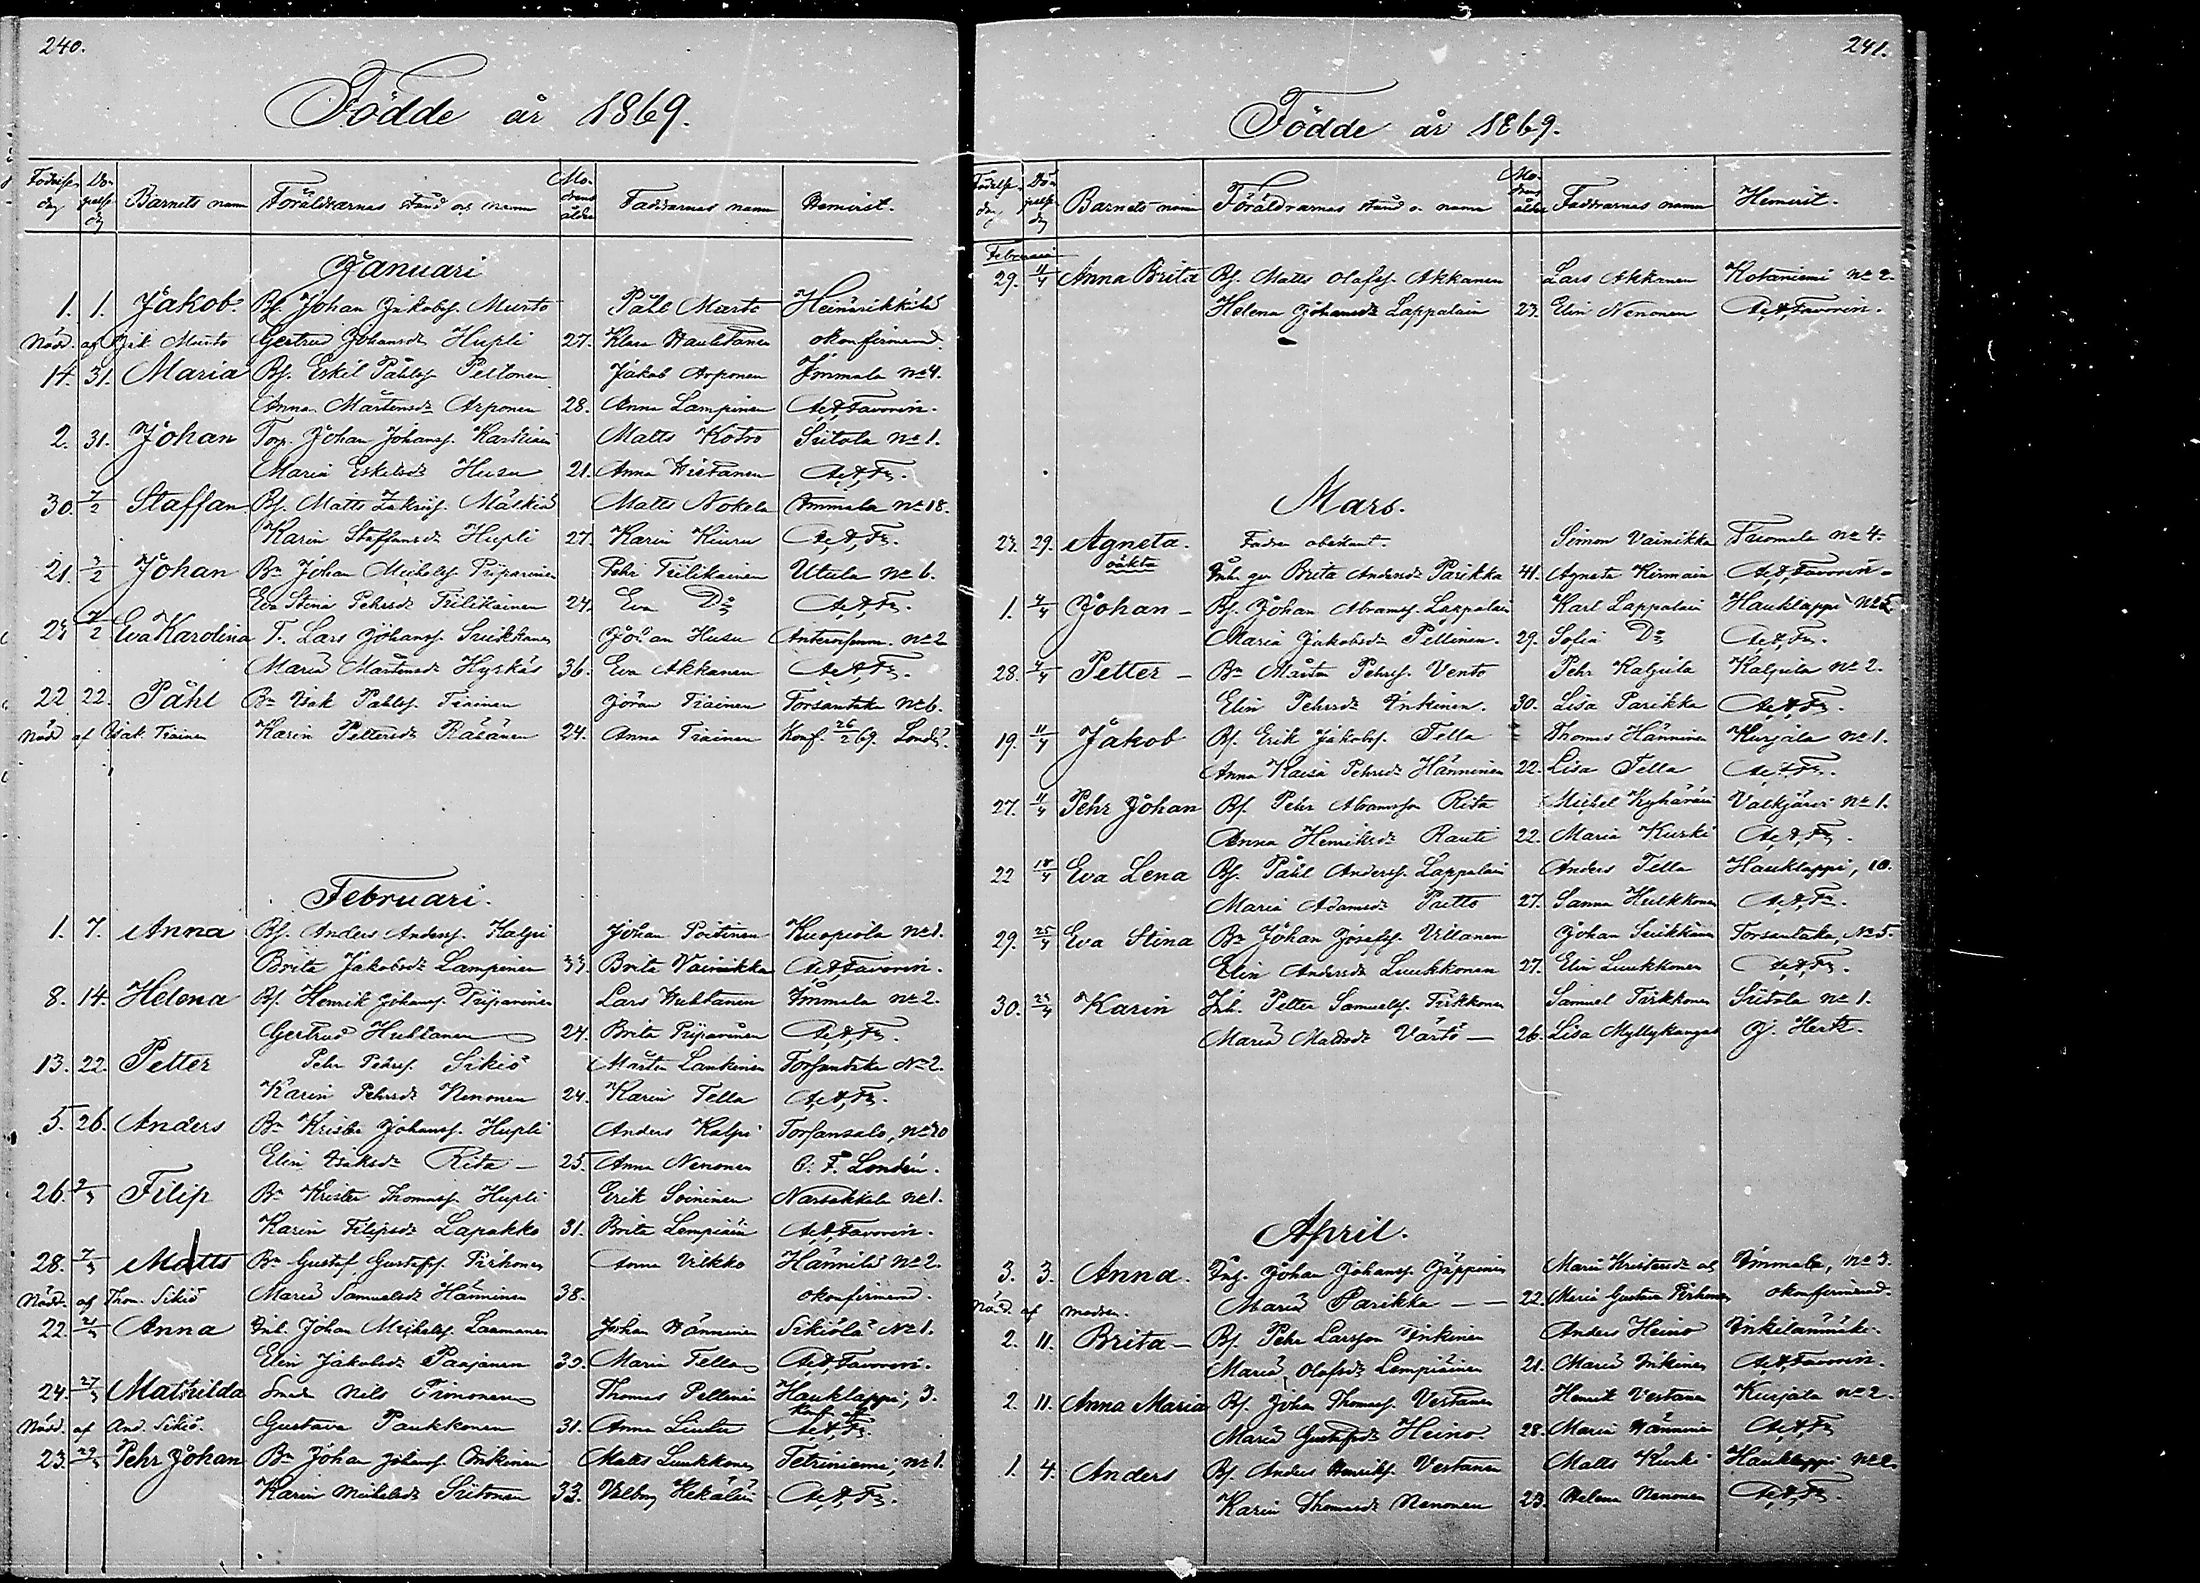 240.
Födde år 1869.
Födelse dag Döpelse dag Barnets namn Föräldrarnas stånd och namn Modrens ålder Faddrarnas namn Hemvist.
Januari
1. 1. Jakob. Bs. Johan Jakobss. Munto Påhl Heinsrikkilä
Nöd. af Erik Munto Gertrud Johansdr Hupli 27. Klara okonfirmerad.
14. 31. Maria Bs. Eskil Påhlss. Peltonen Jakob Arponen Immala No 4.
Anna Mårtensdr Arponen 28. Anna Lampinen A. A. Favorin.
2. 31. Johan Torp. Johan Johanss. Karhinen Matts Kotro Siitola No 1.
Maria Eskelsdr Husu 21. Anna A. A. Fn.
30. 7/2 Staffan Bs. Matts Mälkiä Matts Nokela Immala No 18.
Karin Staffansdr Hupli 27. Karin Kiuru A. A. Fn.
21. 7/2 Johan Bn Johan Michelss. Piiparinen Pehr Tiilikainen Utula No 6.
Eva Stina Pehrsdr Tiilikainen 24. Eva Do A. A. Fn.
23 7/2 Eva Karolina T. Lars Johanss. Suikkanen Johan Husu No 2
Maria Mårtensdr Hyrkäs 36. Eva Akkanen A. A. Fn.
22 22. Påhl Bn Isak Påhlss. Tiainen Göran Tiainen Torsantaka No 6.
Nöd. af Isak Tiainen Karin Pettersdr Räsänen 24. Anna Tiainen Konf. 26/2 69. Londén.
Februari.
1. 7. Anna Bs. Anders Anderss. Kalpi Johan Poutinen Kuopiola No 1.
Brita Jakobsdr Lampinen 33. Brita Vainikka A. A. Favorin.
8. 14. Helena Bs. Henrik Johanss. Piiparinen Lars Huhtanen Immala No 2.
Gertrud Huhtanen 24. Brita Piiparinen A. A. Fn.
13. 22. Petter Pehr Pehrss. Sikiö Mårten Lankinen Torsantaka No 2.
Karin Pehrsdr Nenonen 24. Karin Tella A. A. Fn.
5. 26. Anders Bn Krister Johanss. Hupli Anders Kalpi Torsansalo, No 20
Elin Isaksdr Rita 25. Anna Nenonen C. F. Londén.
26. 7/3 Filip Bn Krister Thomass. Hupli Erik Soininen Narsakkala No 1.
Karin Filipsdr Lapakko 31. Brita Lempiäin A. A. Favorin.
28. 7/3 Matts Bn Gustaf Gustafss. Pirhonen Anna Vilkko Hännilä No 2.
Nöd. af Thom. Sikiö Maria Samuelsdr Hänninen 38. okonfirmerad.
22. 21/3 Anna Inh. Johan Michelss. Laamanen Johan Hänninen Sikiölä No 1.
Elin Jakobsdr Paajanen 33. Maria Tella A. A. Favorin.
24. 27/3 Mathilda Smeden Nils Timonen Thomas Pellinen Hauklappi, 3.
Nöd. af And. Sikiö. Gustava Paukkonen 31. Anna Konf. af A. A. Fn.
23. 29/3 Pehr Johan Bn Johan Johanss. Onkinen Matts Luukkonen Tetriniemi, No 1.
Karin Michelsdr Siitonen 33. Valborg Hekäläin A. A. Fn.
241.
Födde år 1869.
Födelse dag Döpelse dag Barnets namn Föräldrarnas stånd o. namn Modrens ålder Faddrarnas namn Hemvist.
Februari
29. 11/4 Anna Brita Bs. Matts Olafss. Akkanen Lars Akkanen Kotaniemi No 2.
Helena Johansdr Lappalain 23. Elin Nenonen A. A. Favorin.
Mars.
23. 29. Agneta. Fadren obekant. Simon Vainikka Tuomala No 4.
oäkta Inh. qv. Brita Andersdr Parikka 41. Agneta A. A. Favorin.
1. 4/4 Johan Bs. Johan Abramss. Lappalain Karl Lappalain Hauklappi No 5.
Maria Jakobsdr Pellinen. 29. Sofia Do A. A. Fn.
28. 4/4 Petter Bn Mårten Pehrss. Vento Pehr Kaljula Kaljula No 2.
Elin Pehrsdr Inkinen. 30. Lisa Parikka A. A. Fn.
19. 11/4 Jakob Bs. Erik Jakobss. Tella Thomas Hänninen Kurjala No 1.
Anna Kaisa Pehrsdr Hänninen 22. Lisa Tella A. A. Fn.
27. 11/4 Pehr Johan Bs. Pehr Abramsson Rita Michel Kyhäräin Valkjärvi No 1.
Anna Henriksdr Rauti 22. Maria Kurki A. A. Fn.
22 18/4 Eva Lena Bs. Påhl Anderss. Lappalain Anders Tella Hauklappi, 10.
Maria Adamsdr Partto 27. Sanna Hulkkonen A. A. Fn.
29. 25/4 Eva Stina Bn Johan Josefss. Villanen Johan Suikkanen Torsantaka, No 5.
Elin Andersdr Luukkonen 27. Elin Luukkonen A. A. Fn.
30. 25/4 Karin Inh. Petter Samuelss. Tirkkonen Samuel Tirkkonen Siitola No 1.
Maria Mattsdr Värtö 26. Lisa Myllykangas G. Hertz.
April.
3. 3. Anna. Inh. Johan Johanss. Jäppinen Maria Kristersdr Immala, No 3.
Nöd. af modren. Maria Parikka 22. Maria Gustava Pirhonen okonfirmerad.
2. 11. Brita Bs. Pehr Larsson Inkinen Anders Heino Inkilänmäki.
Maria Olofsdr Lempiäinen 21. Maria Inkinen A. A. Favorin.
2. 11. Anna Maria Bs. Johan Thomass. Vertanen Henrik Vertanen Kurjala No 2.
Maria Gustafsdr Heino 28. Maria Hänninen A. A. Fn
1. 4. Anders Bs. Anders Henrikss. Vertanen Matts Kurki Hauklappi No 2.
Karin Thomasdr Nenonen 23. Helena Nenonen A. A. Fn.